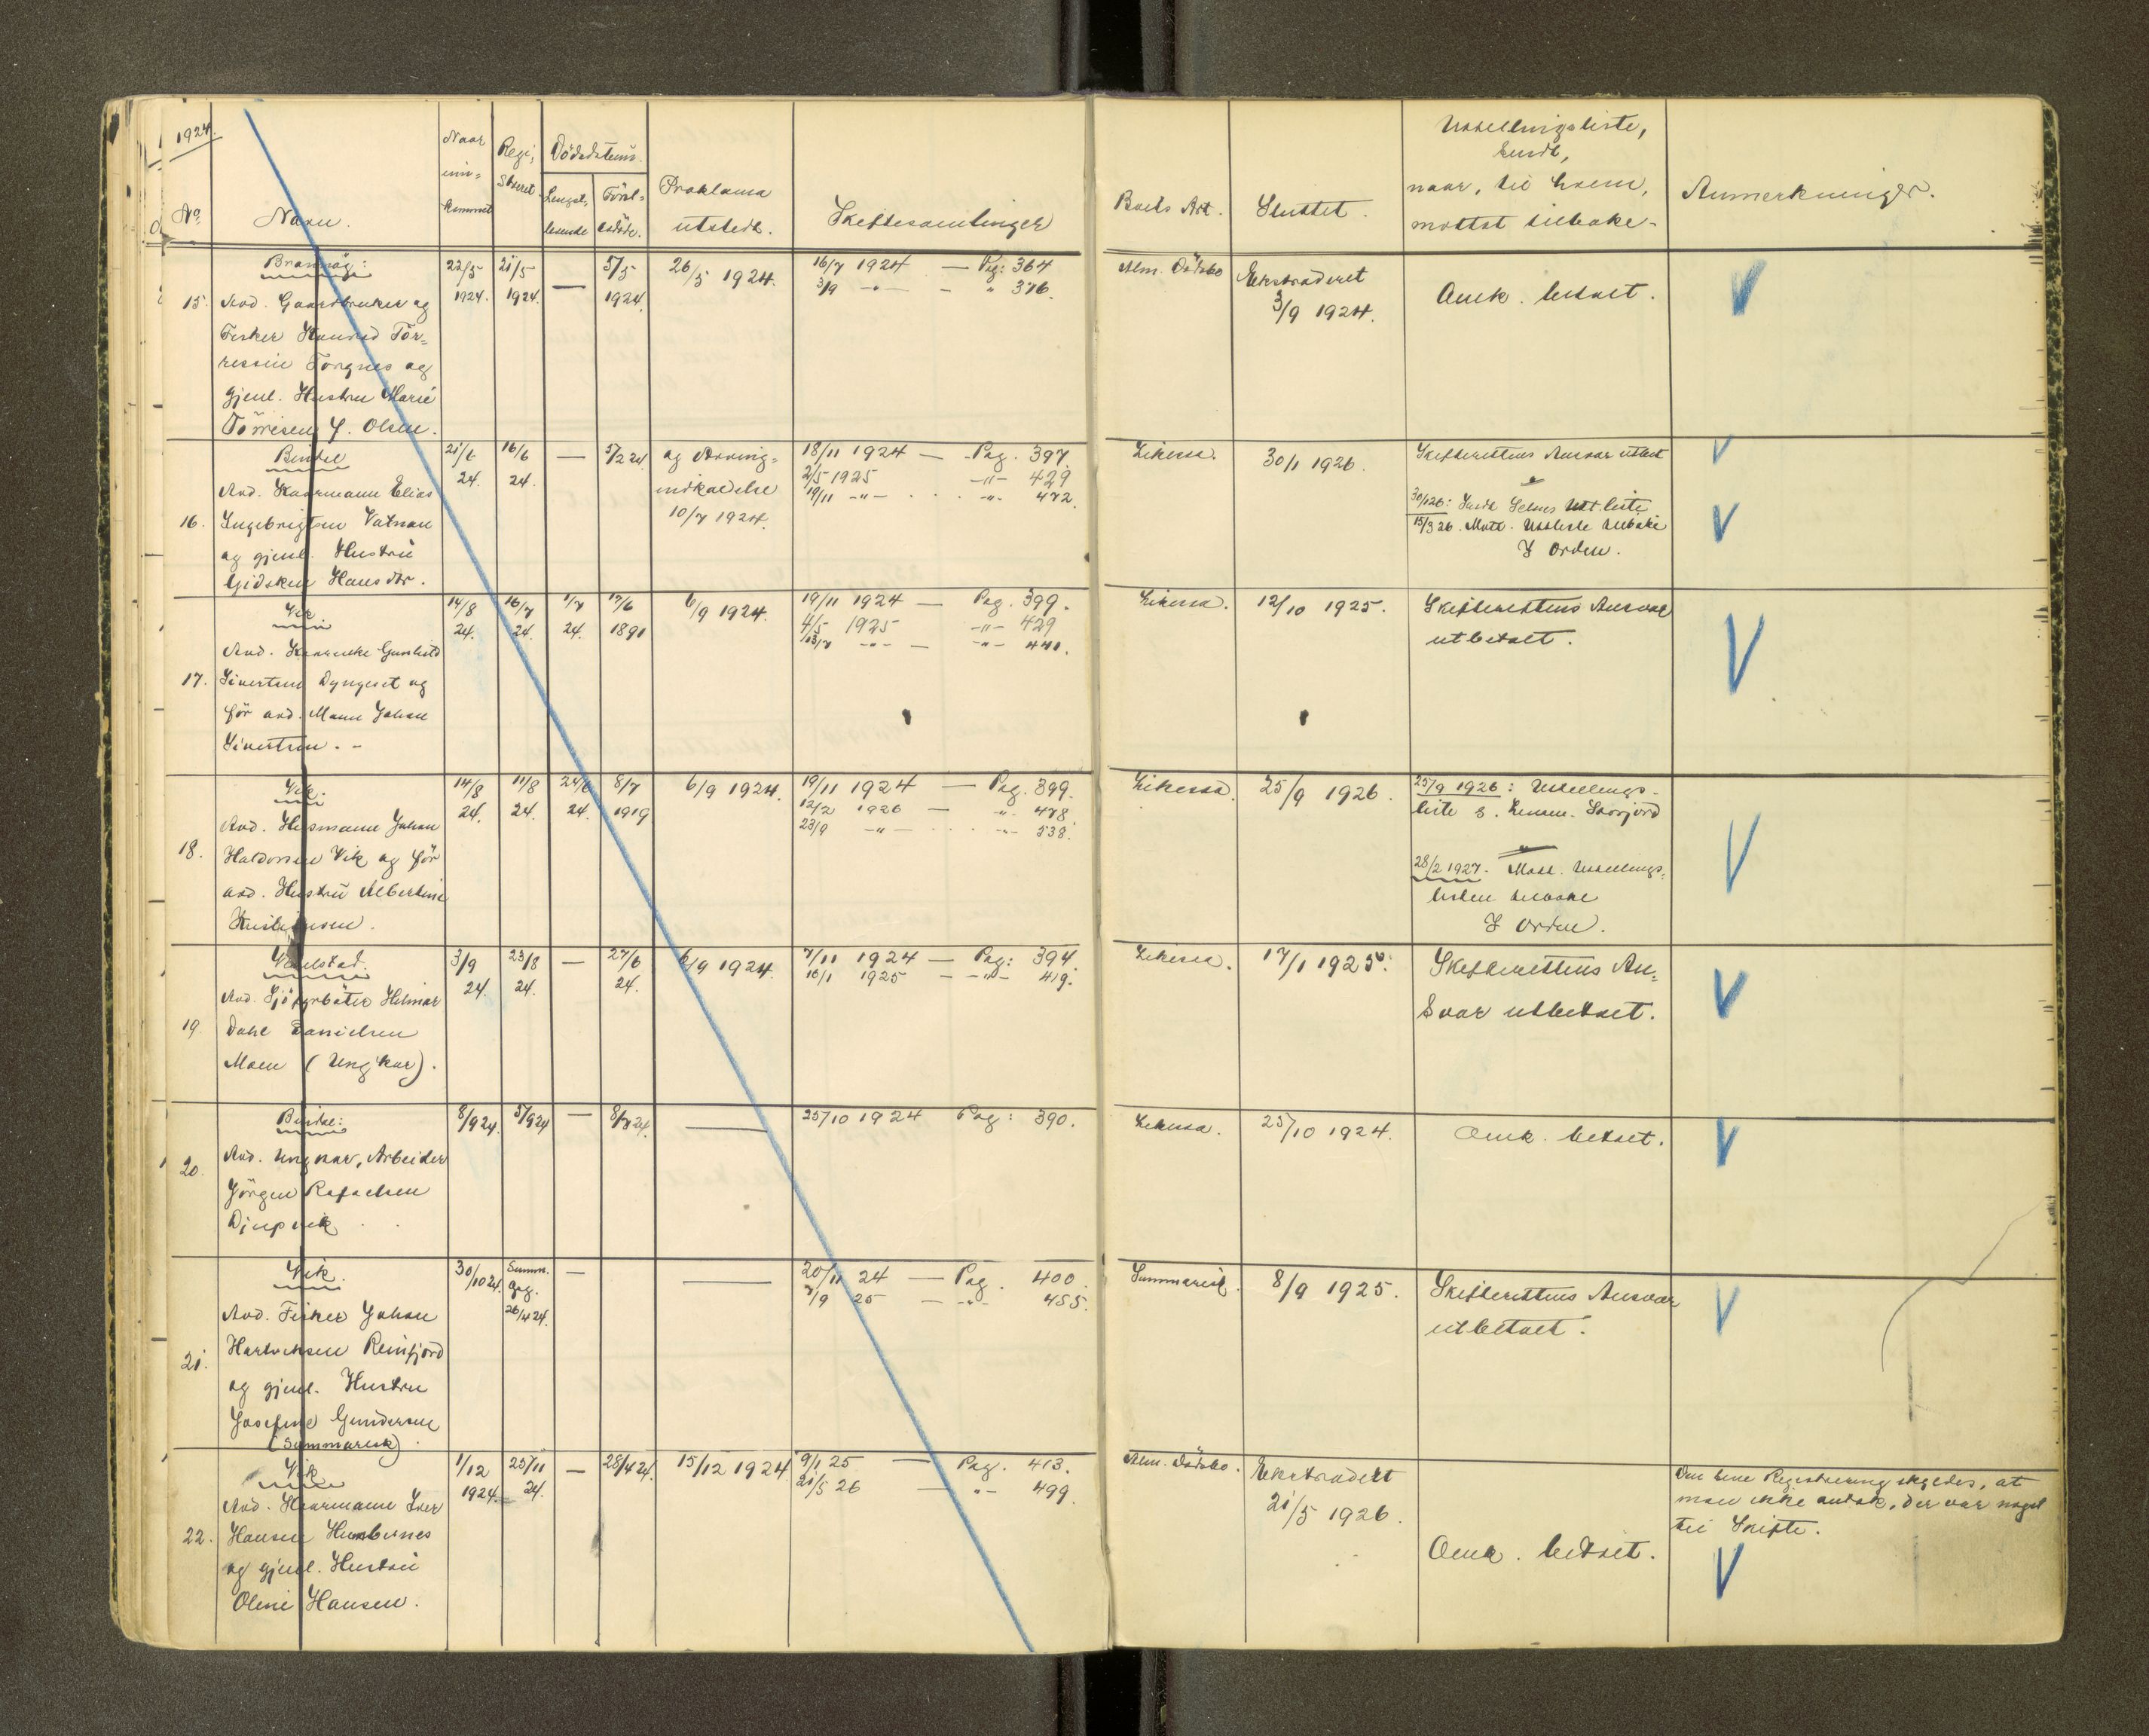 1924.
No.
Navn.
Naar
inn=
kommet
Regi-
streret.
Dödsdatum.
Lengst-
levende
Först-
avdöde.
Proklama
utstedt.
Skiftesamlinger
Boets Art.
Sluttet.
Utdelingsliste,
sendt,
naar, til hvem,
mottat tilbake-
Anmerkninger.
Brønnøy:
15. Avd. Gaardbruker og
Fisker Konrad Tör=
resen Torgnes og
gjenl. Hustru Marie
Törresen f. Olsen.
22/5 1924.
21/5 1924.
—
5/5 1924.
26/5 1924.
16/7 1924 — Pag: 364
3/9 -"- - " 376.
Alm. Dödsbo
Ekstraderet
3/9 1924.
Omk. betalt.
Bindal
16. Avd. Kaarmann Elias
Ingebrigtsen Vatnan
og gjenl. Hustru
Gidsken Hansdtr.
21/6 24.
16/6 24.
—
5/2 24.
og Arving=
indkaldelse
10/7 1924.
18/11 1924 — Pag. 397.
2/5 1925 -"- 429
19/11 -"- . . . -"- 472.
Likessa.
30/1 1926.
Skifterettens Ansvar utbet
30/1 26: Sendt Utd. liste
15/3 26. Mott. Utdliste tilbake
I Orden.
Vik.
17. Avd. Gunhild
Sivertsen Dyngeset og
för avd. Mann Johan
Sivertsen. -
14/8 24.
16/7 24.
1/7 24.
17/6 1891
6/9 1924.
19/11 1924 — Pag. 399.
4/5 1925 -"- 429
13/7 -"- — -"- 441.
Likessa.
12/10 1925.
Skifterettens Ansvar
utbetalt.
Vik.
18. Avd. Husmann Johan
Haldorsen Vik og för
avd. Hustru Albertine
Kristiansen.
14/8 24.
11/8 24.
24/6 24.
8/7 1919
6/9 1924.
19/11 1924 — Pag. 399.
12/2 1926 — " 478.
23/9 -"- . . . -"- 538.
Likessa.
25/9 1926.
25/9 1926: Utdelings-
liste s. Lensm. Storjord
28/2 1927. Mott. Utdelings=
listen tilbake
I Orden.
Velfjord.
19. Avd. Hilmar
Dahl Danielsen
Moen (Ungkar).
3/9 24.
23/8 24.
—
27/6 24.
6/9 1924.
7/11 1924 — Pag: 394
16/1 1925 — -"- 419.
Likessa.
17/1 1925.
Skifterettens An=
svar utbetalt.
Bindal:
20. Avd. Ungkar, Arbeider
Jörgen Rafaelsen
Djupvik
8/9 24.
5/9 24
—
8/8 24.
—
25/10 1924 Pag: 390.
Likessa.
25/10 1924.
Omk. betalt.
Vik.
21. Avd. Fisker Johan
Hartviksen Reinfjord
og gjenl. Hustru
Josefine Gundersen
(Summarisk).
30/10 24.
Summ.
26/4 24.
—
—
20/11 24 — Pag. 400.
7/9 25 — -"- 455.
Summarisk.
8/9 1925.
Skifterettens Ansvar
utbetalt.
Vik
22. Avd. Kaarmann Iver
Hansen Hembernes
og gjenl. Hustru
Oline Hansen.
1/12 1924.
25/11 24.
—
28/4 24.
15/12 1924
9/1 25 — Pag. 413.
21/5 26 — -"- 499.
Alm. Dödsbo.
Ekstradert
21/5 1926.
Omk. betalt.
Den sene Registrering skyldes, at
man ikke antok, der var noget
til Skifte.